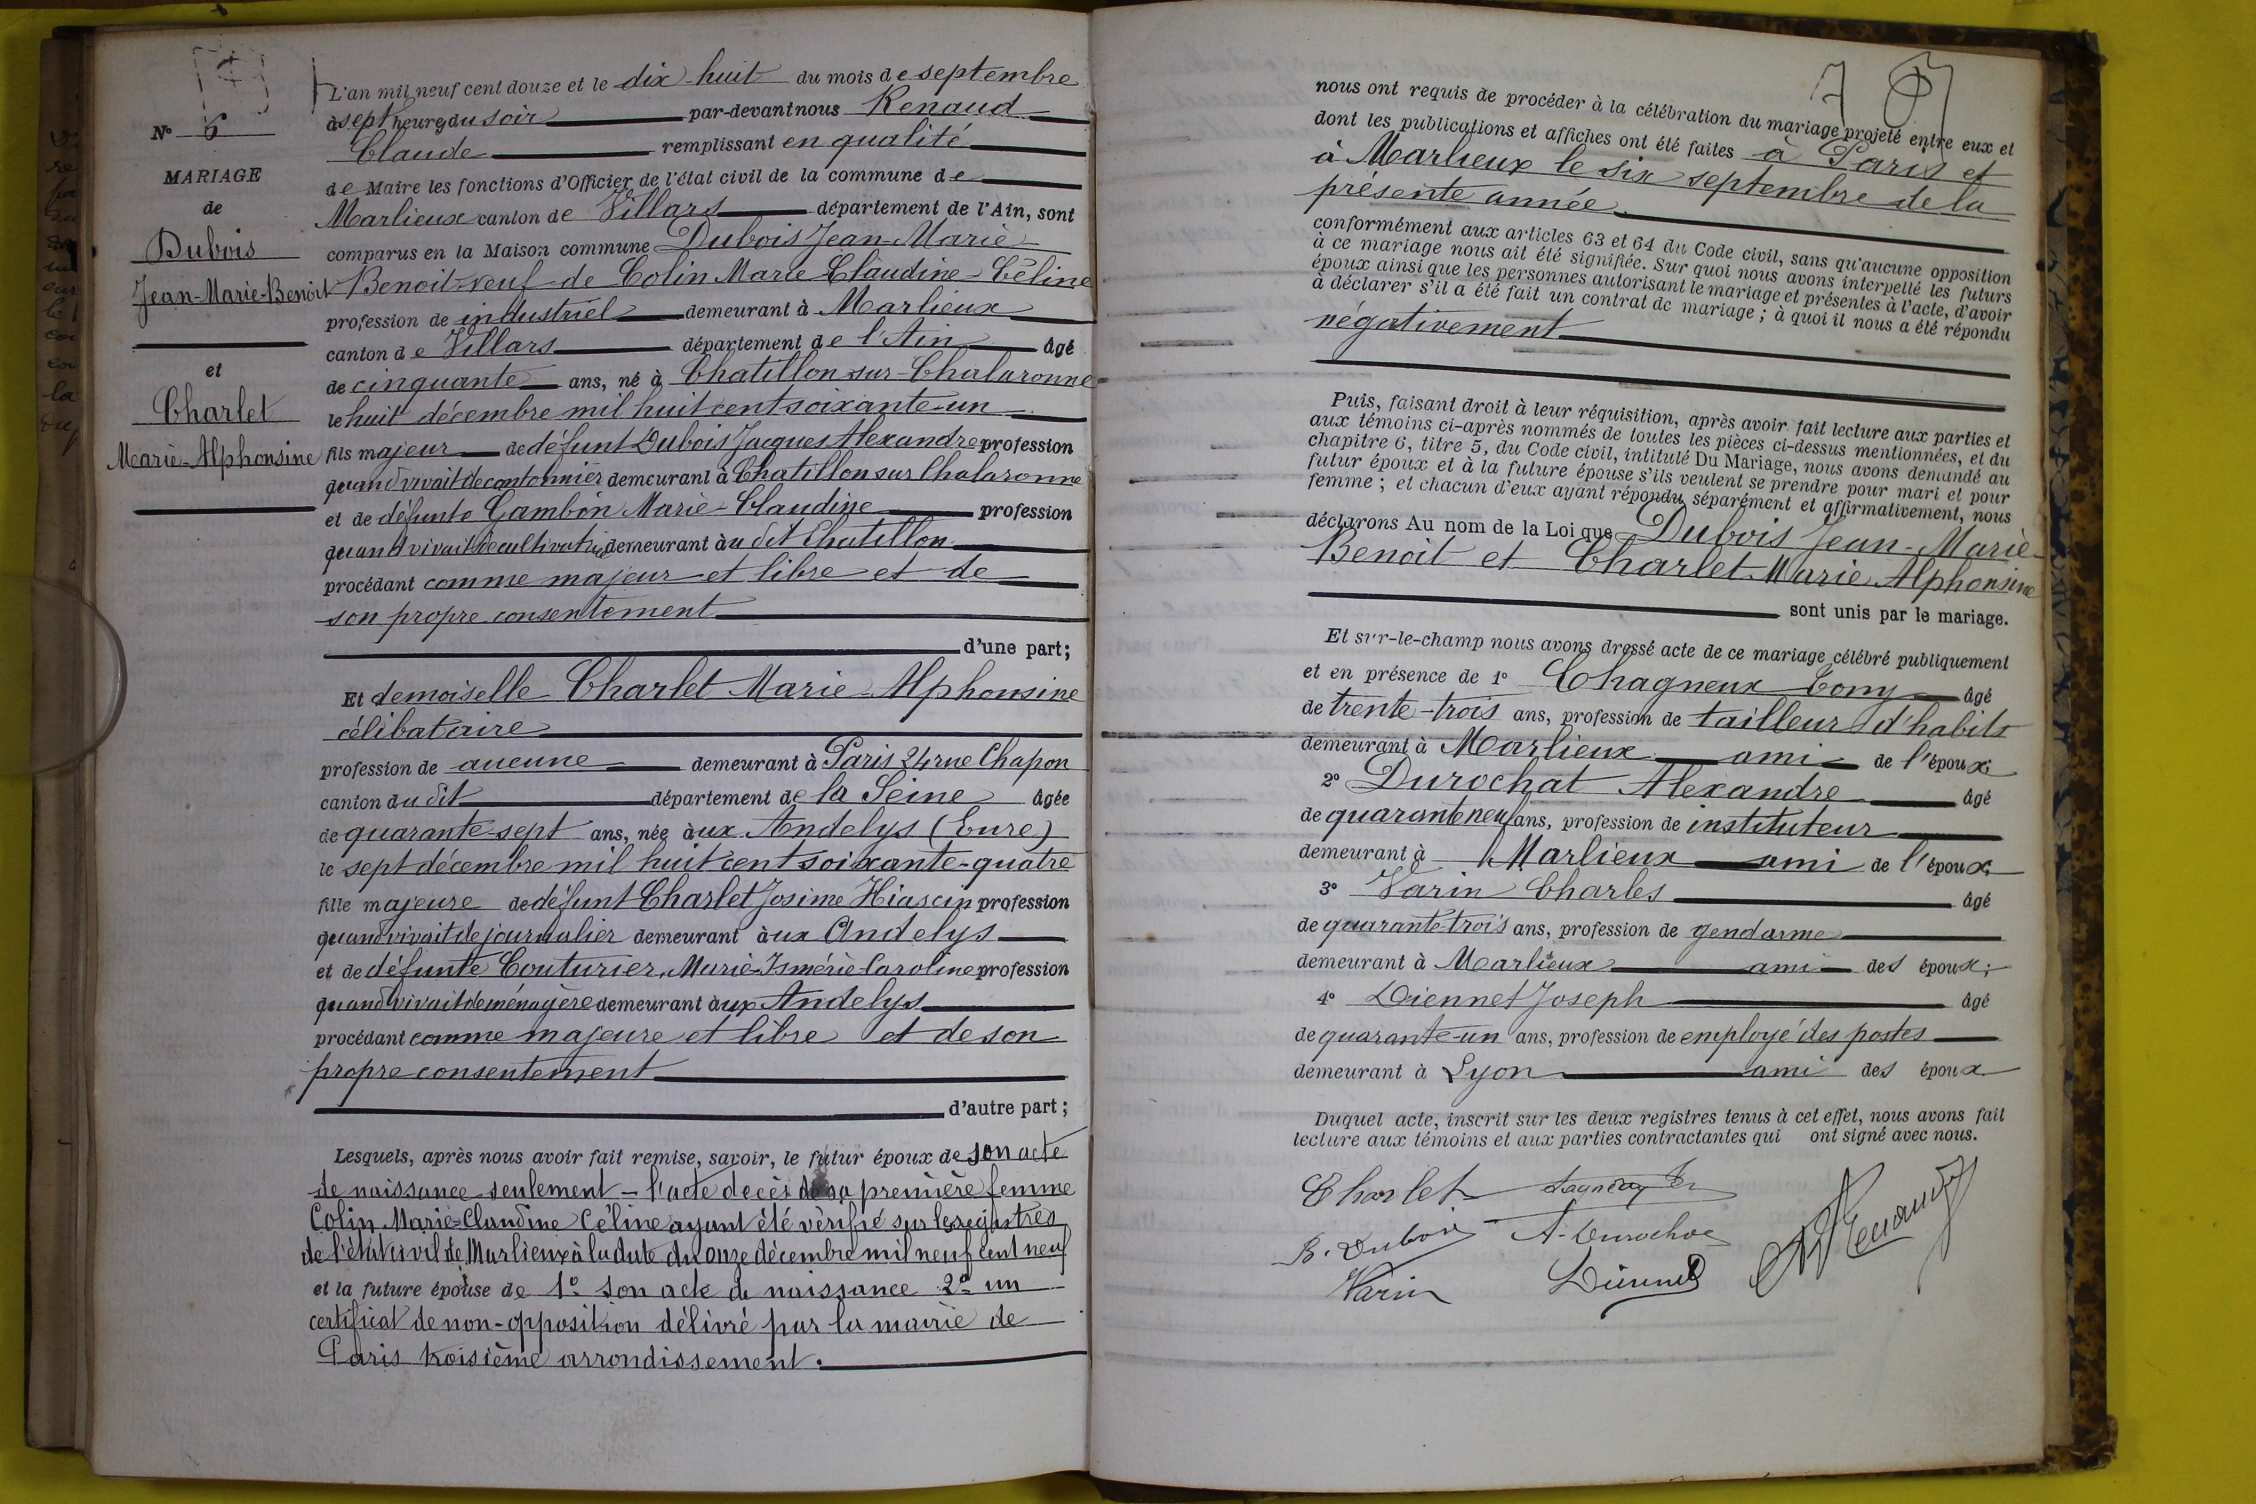 N° 6
MARIAGE
de
Dubois
Jean-Marie-Benoit
et
Charlet
Marie-Alphonsine
L'an mil neuf cent douze et le dix-huit du mois de septembre
à sept heures du soir par-devant nous Renaud
Claude remplissant en qualité
de Maire les fonctions d'Officier de l'état civil de la commune de
Marlieux canton de Villars département de l'Ain, sont
comparus en la Maison commune Dubois Jean-Marie
Benoit veuf de Colin Marie Claudine-Céline
profession de industriel demeurant à Marlieux
canton de Villars département de l'Ain âgé
de cinquante ans, né à Chatillon-sur-Chalaronne
le huit décembre mil huit cent soixante-un
fils majeur de défunt Dubois Jacques Alexandre profession
quand vivait de cantonnier demeurant à Chatillon sur Chalaronne
et de défunte Gambon Marie-Claudine profession
quand vivait de cultivatrice demeurant àu dit Chatillon
procédant comme majeur et libre et de
son propre consentement
d'une part;
Et demoiselle Charlet Marie-Alphonsine
célibataire
profession de aucune demeurant à Paris 24 rue Chapon
canton du dit département de la Seine âgée
de quarante-sept ans, née àux Andelys (Eure)
le sept décembre mil huit cent soixante-quatre
fille majeure de défunt Charlet Josime Hiascin profession
quand vivait de journalier demeurant àux Andelys
et de défunte Couturier, Marie-Ismérie Caroline profession
quand vivait de ménagère demeurant àux Andelys
procédant comme majeure et libre et de son
propre consentement
d'autre part;
Lesquels, après nous avoir fait remise, savoir, le futur époux de son acte
de naissance seulement - l'acte decès de sa première femme
Colin Marie-Claudine Céline ayant été vérifié sur les registres
de l'état civil de Marlieux à la date du onze décembre mil neuf cent neuf
et la future épouse de 1° son acte de naissance 2° un
certificat de non-opposition délivré par la mairie de
Paris troisième arrondissement.
nous ont requis de procéder à la célébration du mariage projeté entre eux et
dont les publications et affiches ont été faites à Paris et
à Marlieux le six septembre de la
présente année
conformément aux articles 63 et 64 du Code civil, sans qu'aucune opposition
à ce mariage nous ait été signifiée. Sur quoi nous avons interpellé les futurs
époux ainsi que les personnes autorisant le mariage et présentes à l'acte, d'avoir
à déclarer s'il a été fait un contrat de mariage; à quoi il nous a été répondu
négativement
Puis, faisant droit à leur réquisition, après avoir fait lecture aux parties et
aux témoins ci-après nommés de toutes les pièces ci-dessus mentionnées, et du
chapitre 6, titre 5, du Code civil, intitulé Du Mariage, nous avons demandé au
futur époux et à la future épouse s'ils veulent se prendre pour mari et pour
femme; et chacun d'eux ayant répondu séparément et affirmativement, nous
déclarons Au nom de la Loi que Dubois Jean-Marie
Benoit et Charlet Marie Alphonsine
sont unis par le mariage.
Et sur-le-champ nous avons dressé acte de ce mariage célébré publiquement
et en présence de 1° Chagneux Tony âgé
de trente-trois ans, profession de tailleur d'habits
demeurant à Marlieux ami de l'époux;
2° Durochat Alexandre âgé
de quarante neuf ans, profession de instituteur
demeurant à Marlieux ami de l'époux;
3° Varin Charles âgé
de quarante-trois ans, profession de gendarme
demeurant à Marlieux ami des époux;
4° Diennet Joseph âgé
de quarante-un ans, profession de employé des postes
demeurant à Lyon ami des époux
Duquel acte, inscrit sur les deux registres tenus à cet effet, nous avons fait
lecture aux témoins et aux parties contractantes qui ont signé avec nous.
Charlet
B. Dubois A. Durochat Renaud
Varin Diennet